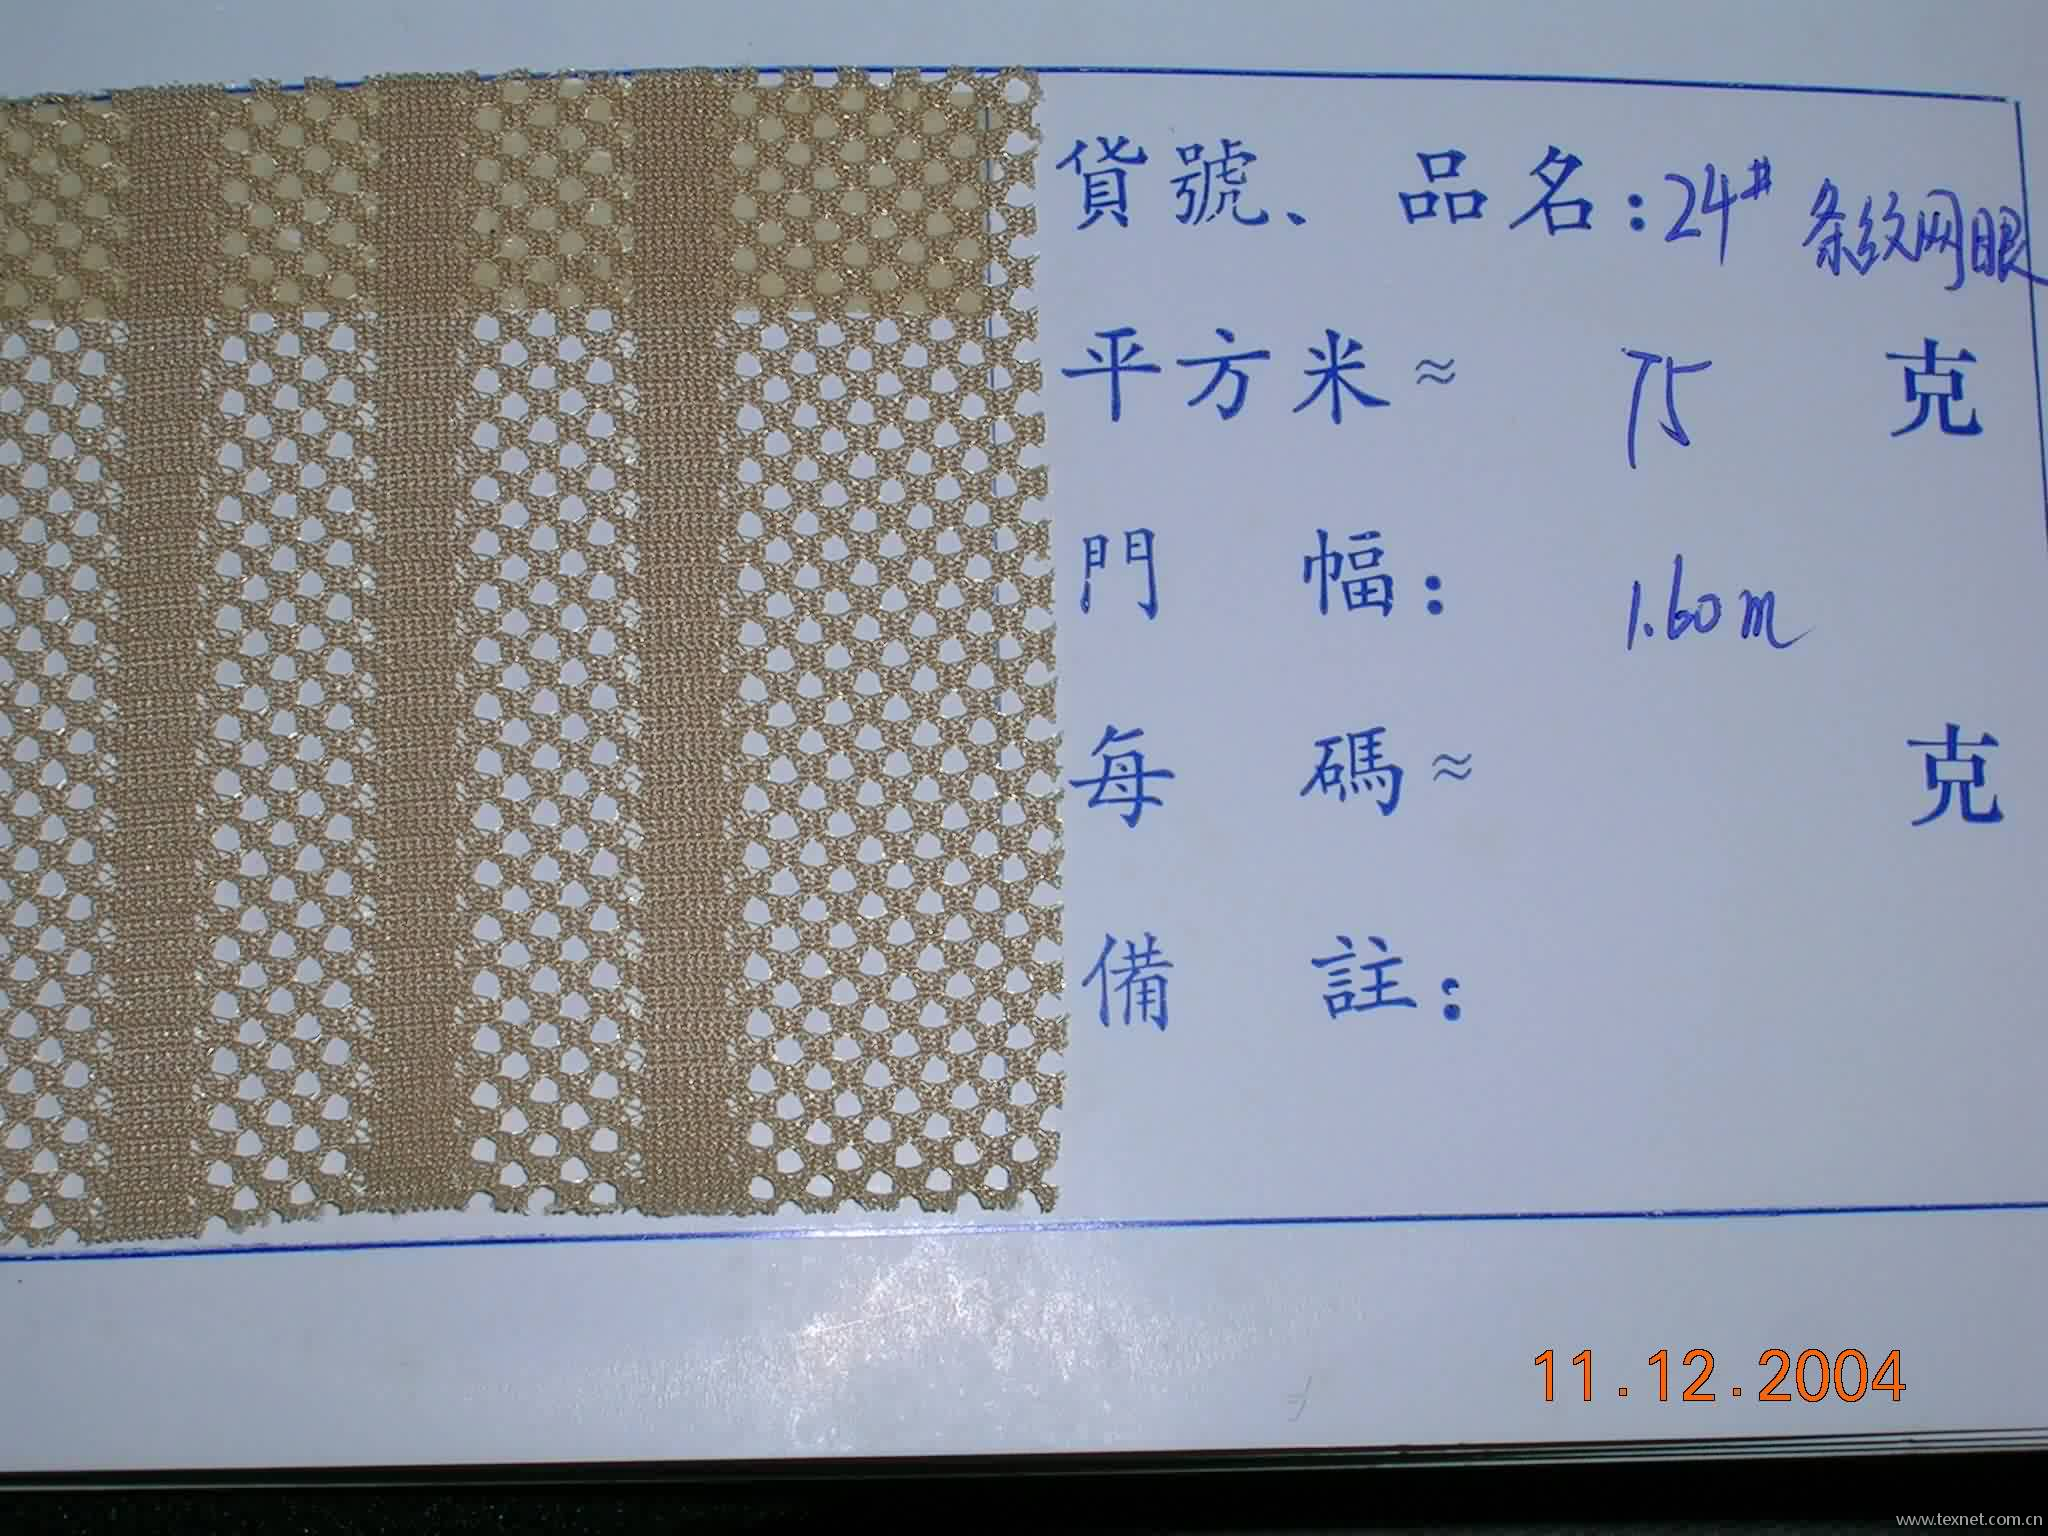 貨號、品名:24# 条纹网眼
平方米≈ 75 克
門幅: 1.60m
每碼≈ 克
備註:
11.12.2004
www.texnet.com.cn